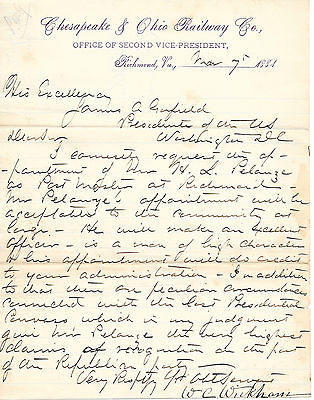 Chesapeake & Ohio Railway Co.,
OFFICE OF SECOND VICE-PRESIDENT,
Richmond, Va., Mar 7th 1881
His Excellency
James A Garfield
President of the US
Washington DC
Dear Sir
I earnestly request the ap-
pointment of Mr H. L. Pelouze
as Post Master at Richmond -
Mr Pelouze's appointment will be
acceptable to the community at
large - He will make an excellent
officer - is a man of high character
& his appointment will do credit
to your administration - In addition
to that there are peculiar circumstances
connected with the last Presidential
Canvass which in my judgment
give Mr Pelouze the very highest
claims of recognition on the part
of the Republican party
Very Respfly Yr Obt Servt
W C Wickham